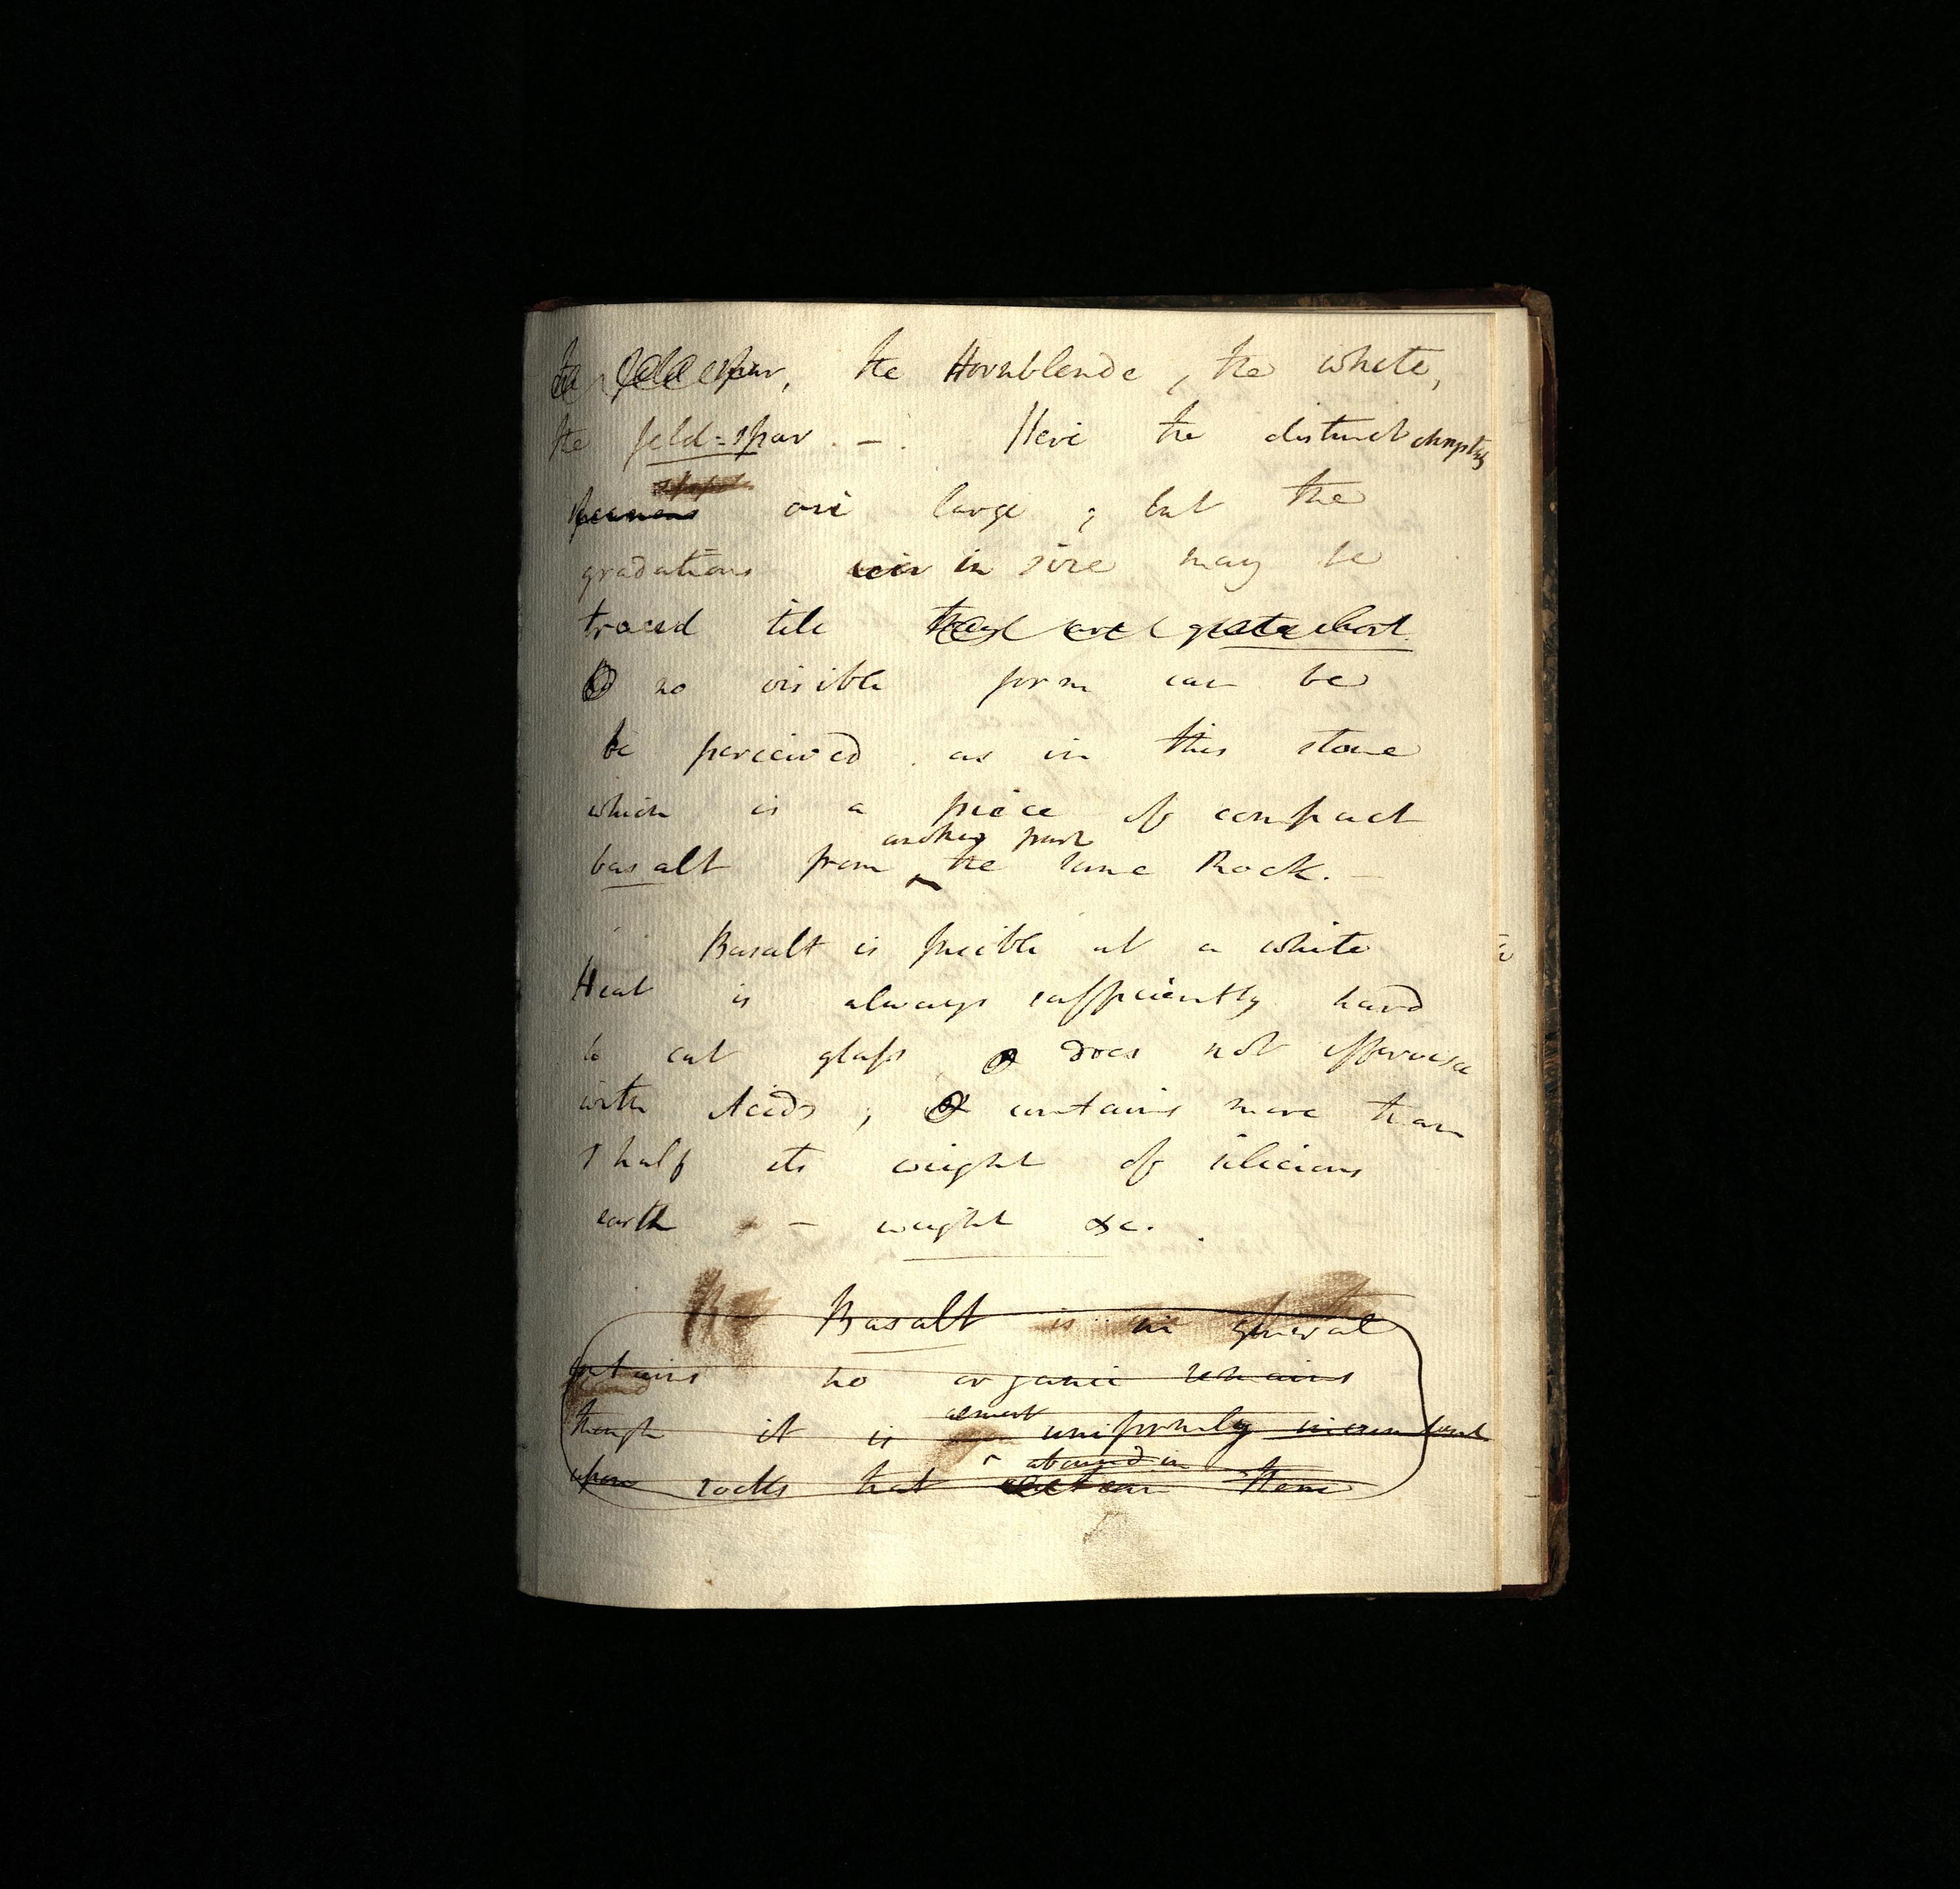 the feldspar, the Hornblende, the white,
the feld=spar. - . Here the distinct
are large; but the
gradations in size may be
traced till they are quite
no visible form can be
be perceived as in this stone
which is a piece of compact
another part
basalt from ^ the same Rock. -
Basalt is fusible at a white
Heat is always sufficiently hard
to cut glass does not effervesce
with Acids; & contains more than
1 half its weight of silicious
earth - weight &c.
Basalt is in general
contains no organic remains
almost
though it is uniformly incumbent
^ abound in
upon rocks that contain them